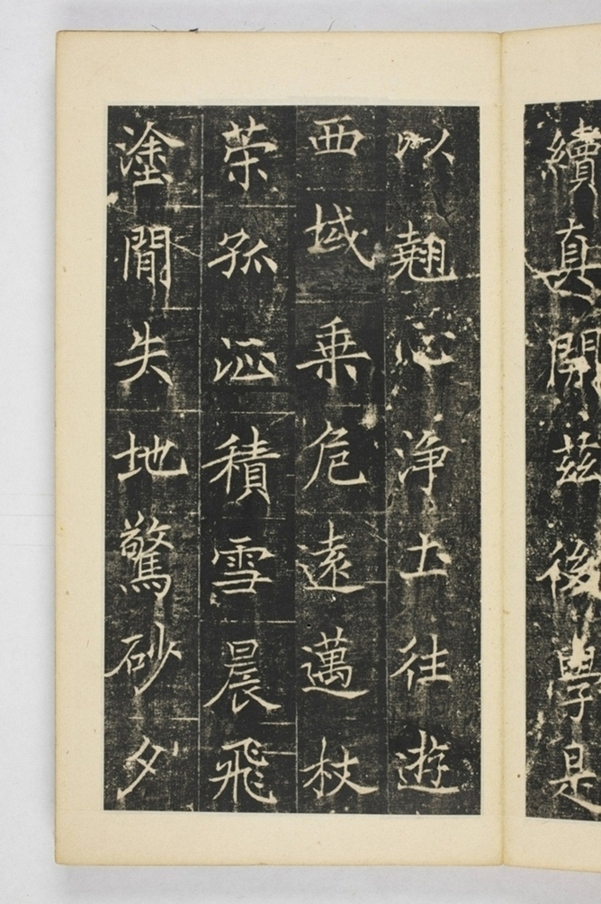 續真開茲後學是
以翹心浄土往遊
西域乗危遠邁杖
策孤征積雪晨飛
塗閒失地驚砂夕